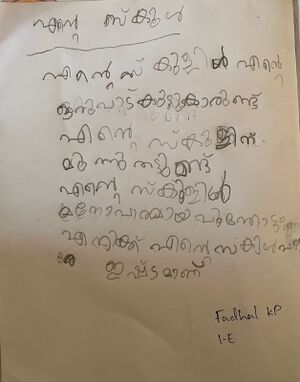 എന്റെ സ്കൂൾ
എന്റെ സ് കുളിൽ എന്റെ
ഒരുപാട് കുട്ടുകാരുണ്ട്
എന്റെ സ്കുളിന്
മൂന്നു തട്ടുണ്ട്
എന്റെ സ്കുളിൽ
മനോഹരമായ പൂന്തോട്ടം
എനിക്ക് എന്റെ സ്കുൾ
ഇഷ്ടമാണ്
Fadhal KP
1-E